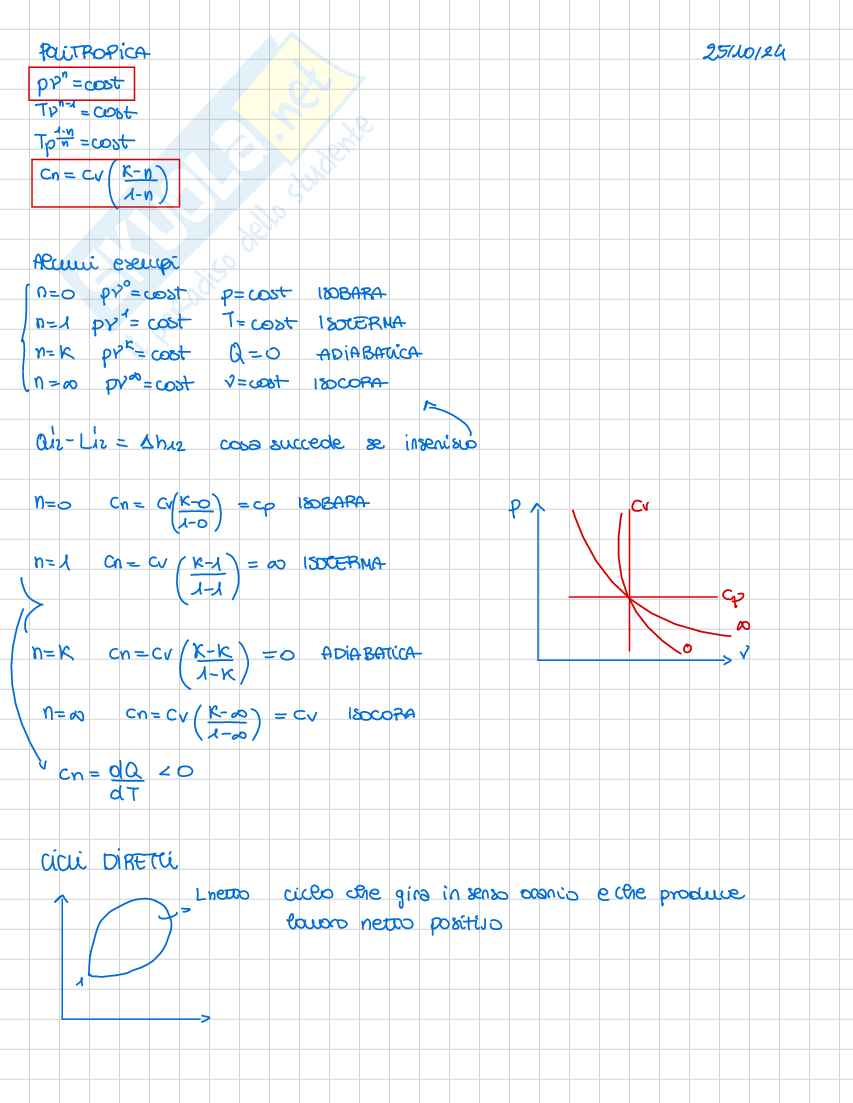 POLITROPICA 25/10/24
pvⁿ = cost
Tvⁿ⁻¹ = cost
Tp^((1-n)/n) = cost
Cn = Cv ((K-n)/(1-n))
Alcuni esempi
n=0 pv⁰ = cost p = cost ISOBARA
n=1 pv¹ = cost T = cost ISOTERMA
n=K pvᴷ = cost Q = 0 ADIABATICA
n=∞ pv^∞ = cost v = cost ISOCORA
Qi12 - Li12 = Δh12 cosa succede se inserisco
n=0 Cn = Cv ((K-0)/(1-0)) = Cp ISOBARA
n=1 Cn = Cv ((K-1)/(1-1)) = ∞ ISOTERMA
n=K Cn = Cv ((K-K)/(1-K)) = 0 ADIABATICA
n=∞ Cn = Cv ((K-∞)/(1-∞)) = Cv ISOCORA
Cn = dQ/dT < 0
P
Cv
Cp
∞
0
v
CICLI DIRETTI
Lnetto ciclo che gira in senso orario e che produce
lavoro netto positivo
1
SKUOLA.net
il paradiso dello studente